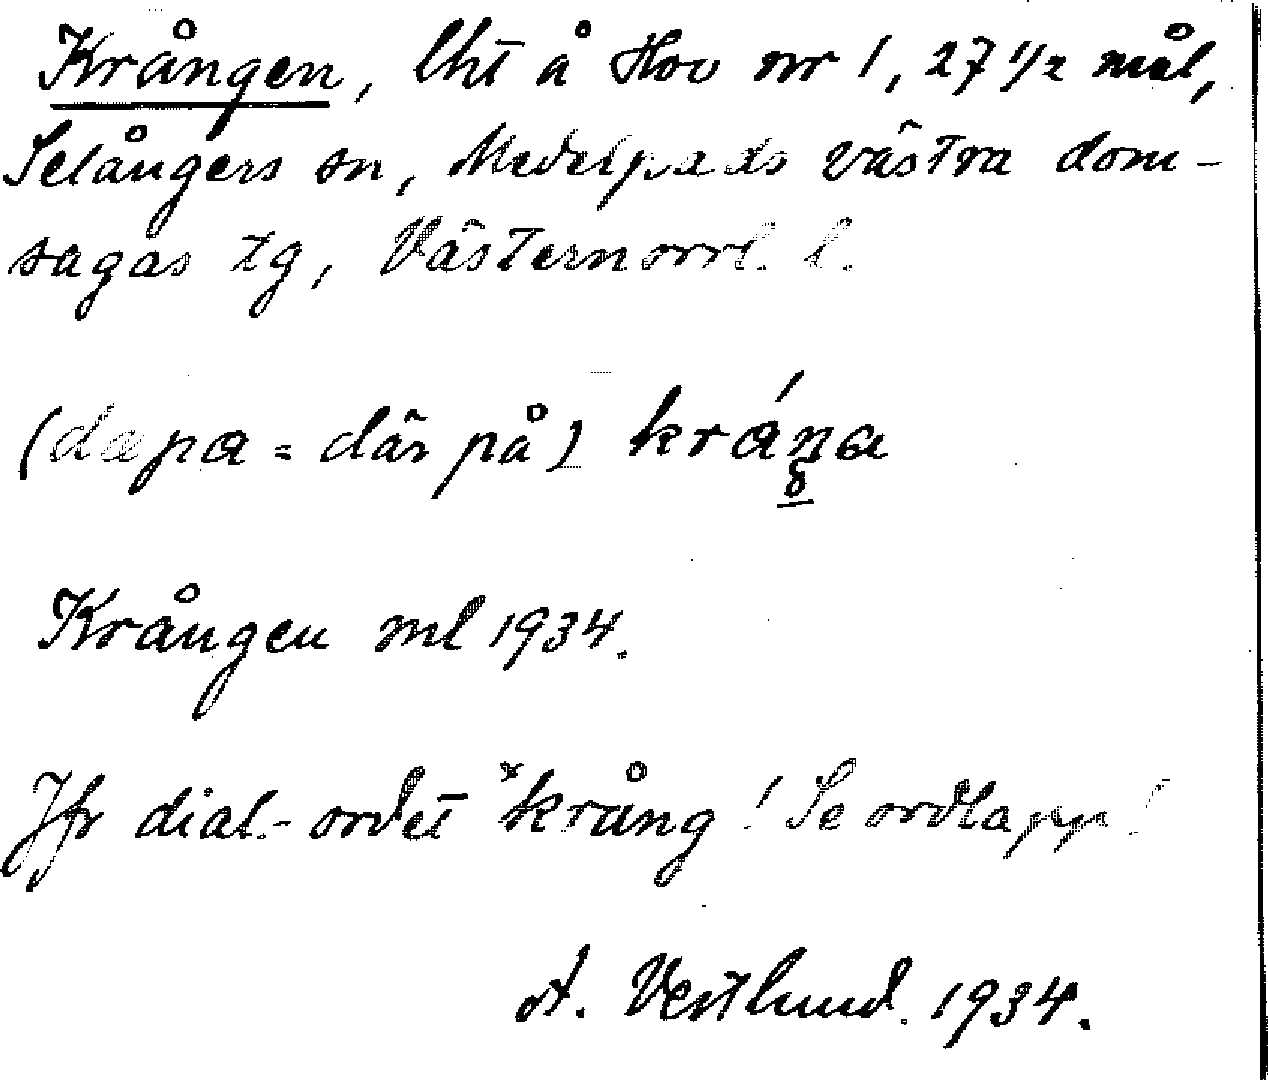 Krången, lht å Hov nr 1, 27 1/2 mål,
Selångers sn, Medelpads västra dom-
sagas tg, Västernorrl. l.
(dæpa = där på) kráŋa
Krången ml 1934.
Jfr dial.-ordet *krång! Se ordlapp!
A. Vestlund. 1934.